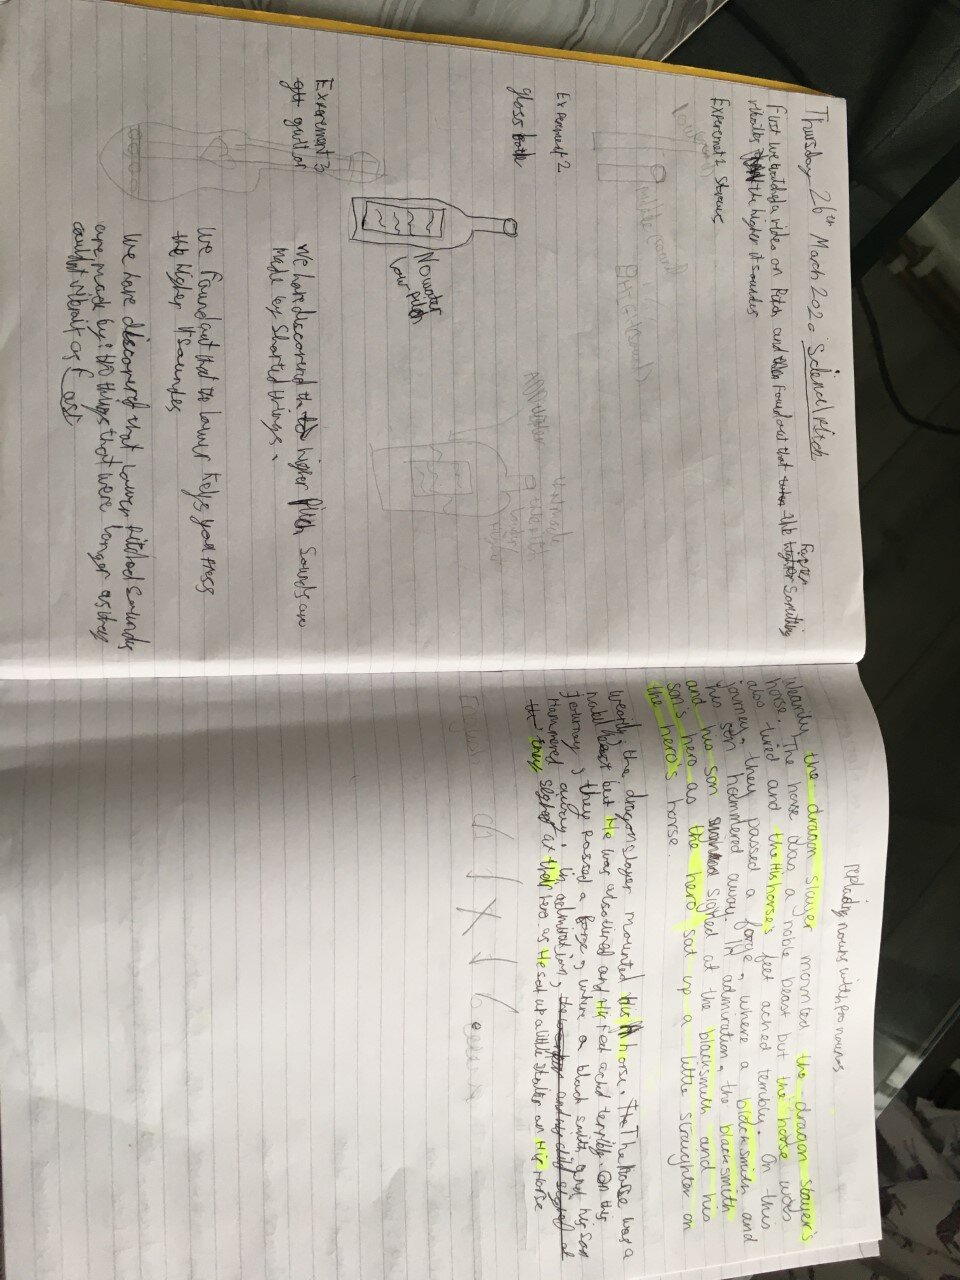 Thursday 26th March 2020 Science/Pitch
First we watched a video on Pitch and then found out that the faster something
vibrates the higher it soundes
Experemet 1 Straws
Experement 2
glass bottle
No water
Low pitch
Add water
Experement 3
guitar
We have discovered the higher Pitch Sounds are
made by Shorted things.
We found out that the lower keys you press
the higher it soundes
We have discovered that lower Pitched Sounds
are made by things that were longer as they
couldn't vibrait as fast
replacing nouns with pronouns
Wearily, the dragon slayer mounted the dragon slayer's
horse. The horse was a noble beast but the horse was
also tired and the horse's feet ached terribly. On this
journey, they passed a forge, where a blacksmith and
his son hammered away. In admiration, the blacksmith
and his son sighed at the blacksmith and his
son's hero as the hero sat up a little straighter on
the hero's horse.
wearily, the dragon slayer mounted His horse. The horse was a
nobel beast but He was also tired and His feet acked terribly. On this
Journay, they passed a forge, where a black smith and his son
Hammered away. in admiration,
they sighed at their hero as He sat up a little on His horse